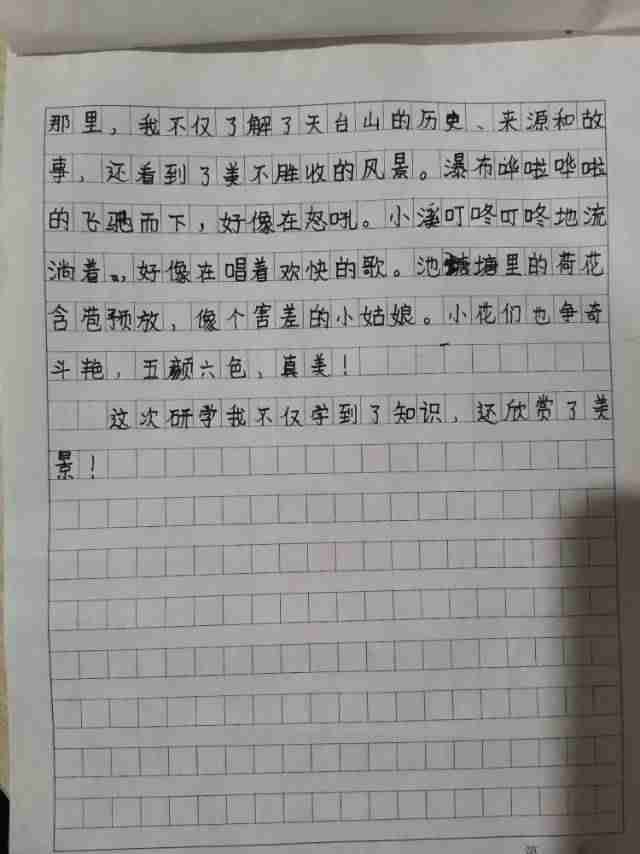 那里，我不仅了解了天台山的历史、来源和故
事，还看到了美不胜收的风景。瀑布哗啦哗啦
的飞驰而下，好像在怒吼。小溪叮咚叮咚地流
淌着，好像在唱着欢快的歌。池塘里的荷花
含苞预放，像个害差的小姑娘。小花们也争奇
斗艳，五颜六色，真美！
这次研学我不仅学到了知识，还欣赏了美
景！
第